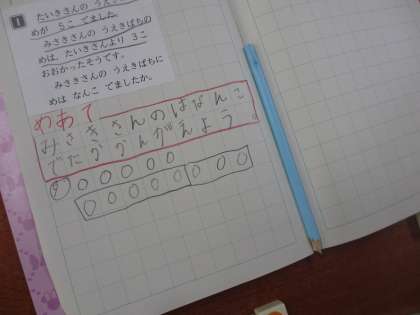 1
たいきさんの うえ
めが 5こ でました
みさきさんの うえきばちの
めは、たいきさんより 3こ
おおかったそうです。
みさきさんの うえきばちに
めは なんこ でましたか。
めあて
みさきさんのはなんこ
でたかかんがえよう。